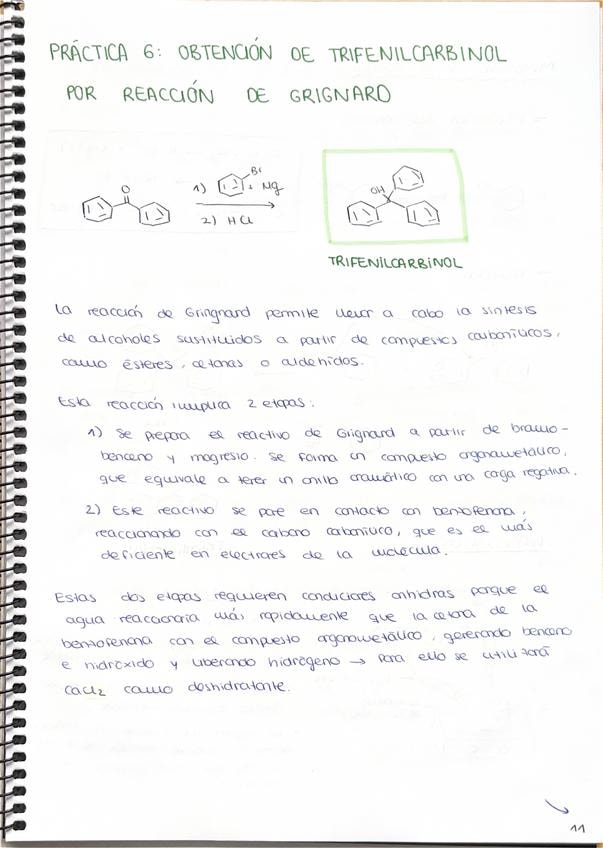 PRÁCTICA 6: OBTENCIÓN DE TRIFENILCARBINOL
POR REACCIÓN DE GRIGNARD
O
1) Br + Mg
2) HCl
OH
TRIFENILCARBINOL
La reacción de Gringnard permite llevar a cabo la síntesis
de alcoholes sustituidos a partir de compuestos carbonílicos,
como ésteres, cetonas o aldehídos.
Esta reacción implica 2 etapas:
1) Se prepara el reactivo de Grignard a partir de bromo-
benceno y magnesio. Se forma un compuesto organometálico,
que equivale a tener un anillo aromático con una carga negativa.
2) Este reactivo se pone en contacto con benzofenona,
reaccionando con el carbono carbonílico, que es el más
deficiente en electrones de la molécula.
Estas dos etapas requieren condiciones anhidras porque el
agua reaccionaría más rápidamente que la cetona de la
benzofenona con el compuesto organometálico, generando benceno
e hidróxido y liberando hidrógeno → Para ello se utilizará
CaCl2 como deshidratante.
11